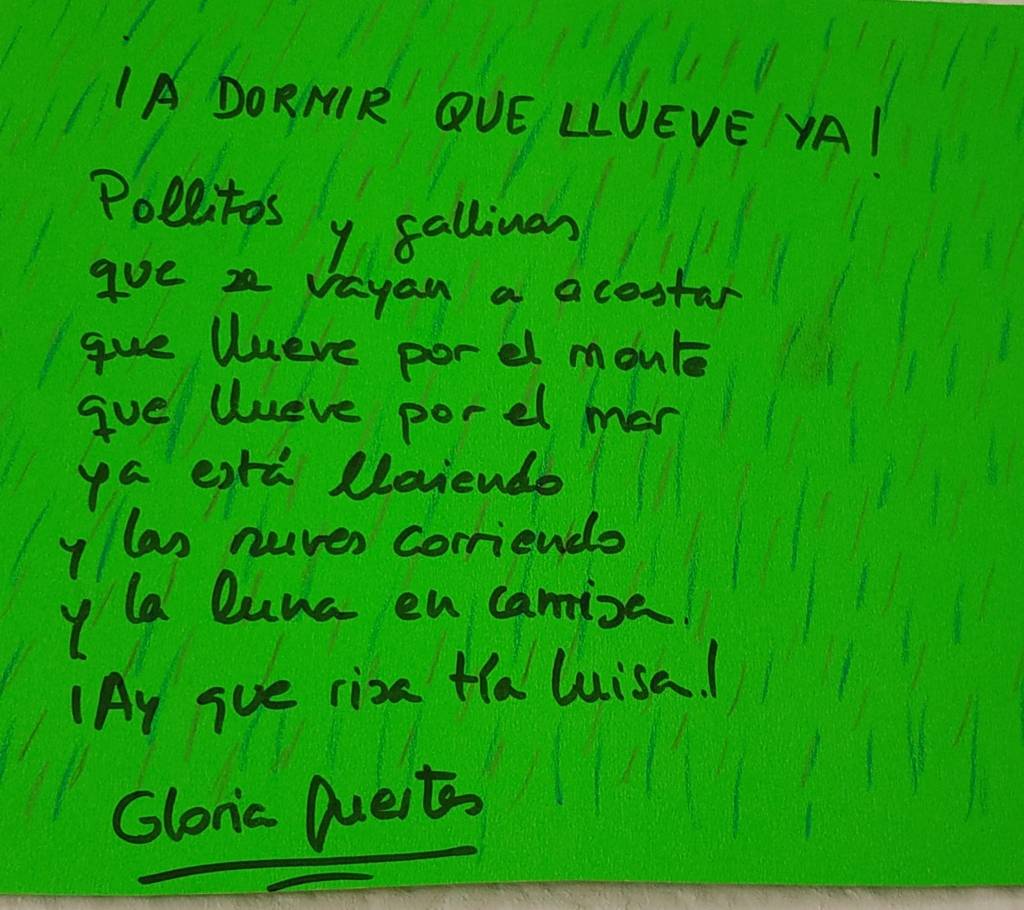 ¡A DORMIR QUE LLUEVE YA!
Pollitos y gallinas
que se vayan a acostar
que llueve por el monte
que llueve por el mar
ya está lloviendo
y las nuves corriendo
y la luna en camisa.
¡Ay que risa tía Luisa!
Gloria Fuertes